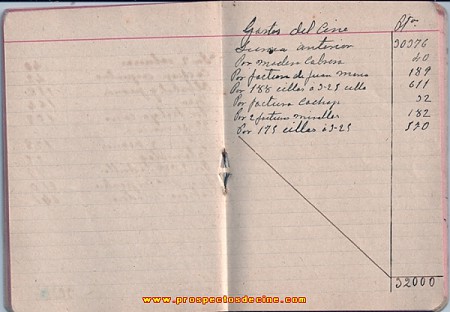 Gastos del Cine Pts
Suma anterior 30376
Por madera Cabrera 40
Por factura de juan 189
Por 188 cillas à 3-25 cilla 611
Por factura 32
Por 2 facturas miralles 182
Por 175 cillas à 3-25 570
32000
www.prospectosdecine.com